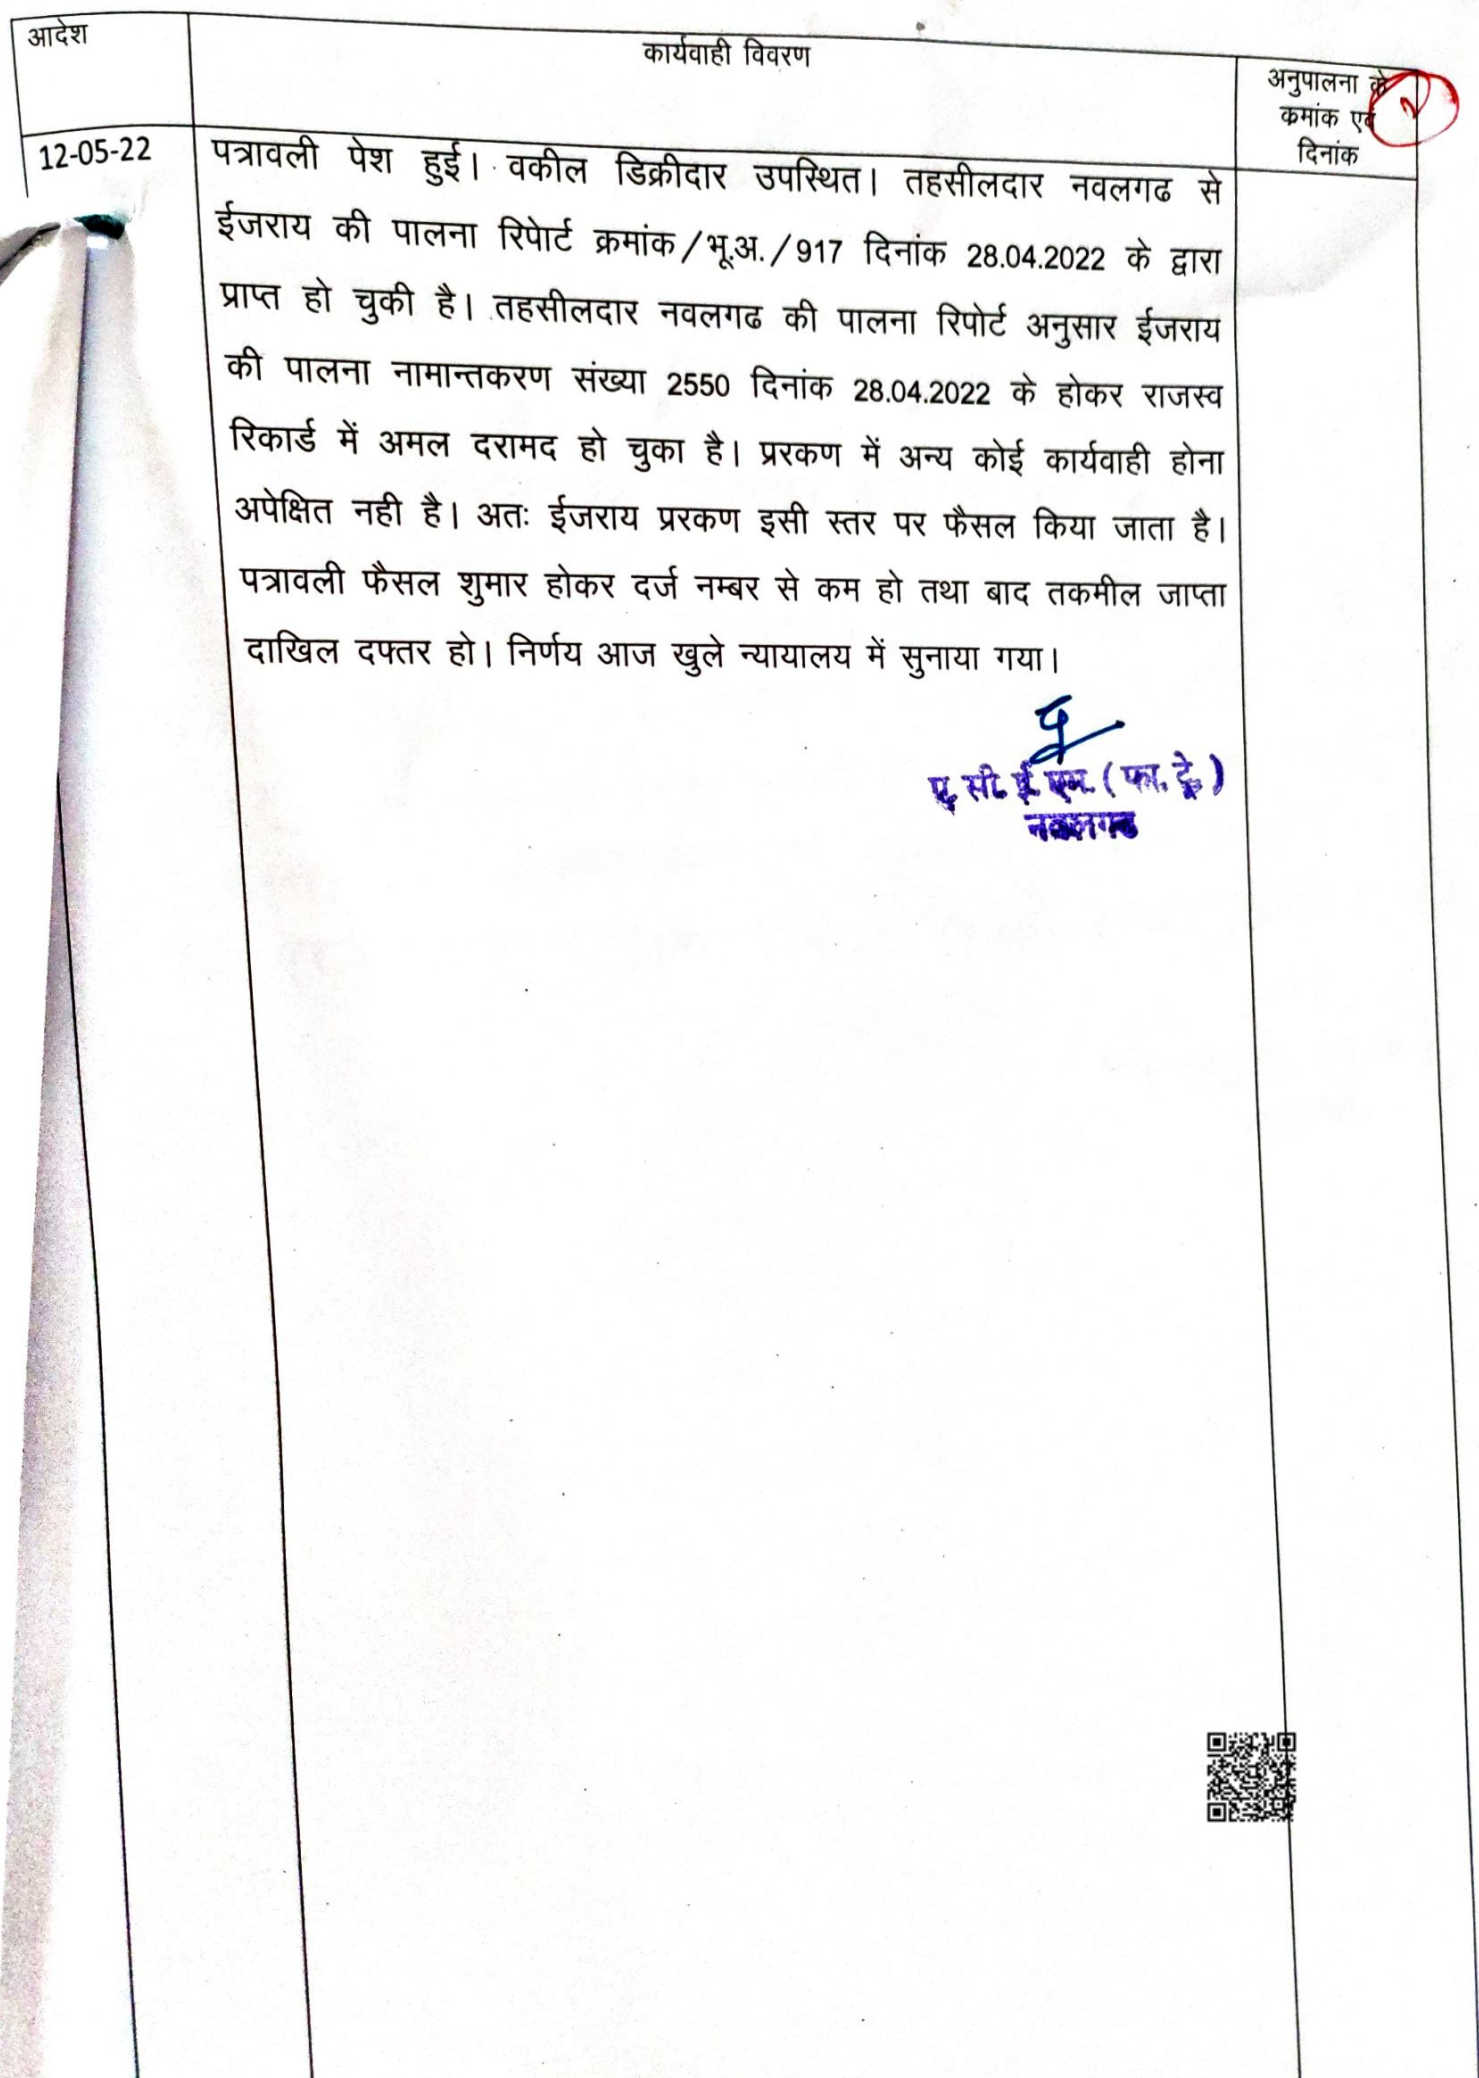 आदेश
कार्यवाही विवरण
अनुपालना के
कमांक एवं
दिनांक
12-05-22
पत्रावली पेश हुई। वकील डिक्रीदार उपस्थित। तहसीलदार नवलगढ से
ईजराय की पालना रिपेार्ट क्रमांक/भू.अ./917 दिनांक 28.04.2022 के द्वारा
प्राप्त हो चुकी है। तहसीलदार नवलगढ की पालना रिपोर्ट अनुसार ईजराय
की पालना नामान्तकरण संख्या 2550 दिनांक 28.04.2022 के होकर राजस्व
रिकार्ड में अमल दरामद हो चुका है। प्ररकण में अन्य कोई कार्यवाही होना
अपेक्षित नही है। अतः ईजराय प्ररकण इसी स्तर पर फैसल किया जाता है।
पत्रावली फैसल शुमार होकर दर्ज नम्बर से कम हो तथा बाद तकमील जाप्ता
दाखिल दफ्तर हो। निर्णय आज खुले न्यायालय में सुनाया गया।
ए. सी. ई. एम. (फा. ट्रे.)
नवलगढ